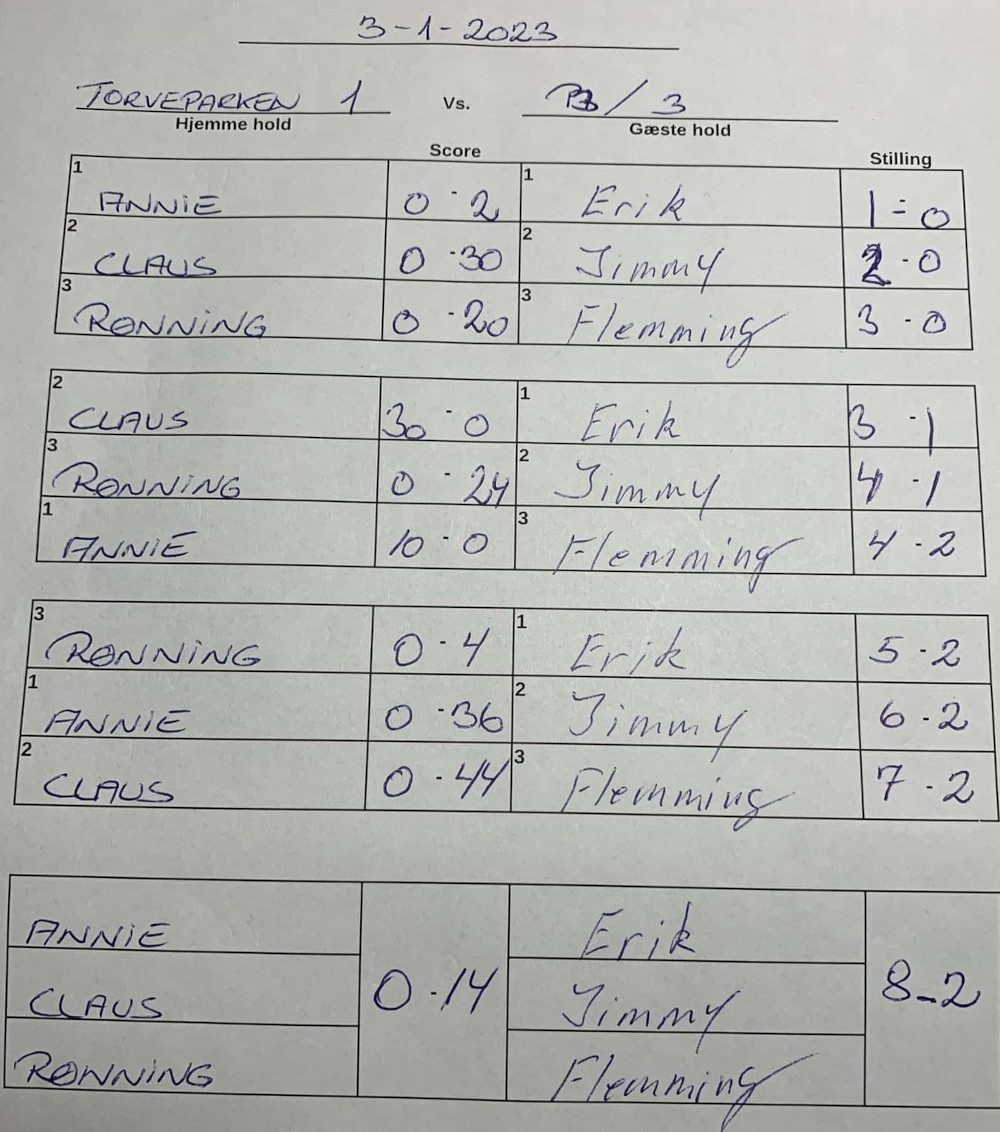 3-1-2023
TORVEPARKEN 1 Vs. / 3
Hjemme hold Gæste hold
Score Stilling
1 ANNiE 0 - 2 1 Erik 1 - 0
2 CLAUS 0 - 30 2 Jimmy 2 - 0
3 RØNNiNG 0 - 20 3 Flemming 3 - 0
2 CLAUS 30 - 0 1 Erik 3 - 1
3 RØNNiNG 0 - 24 2 Jimmy 4 - 1
1 ANNiE 10 - 0 3 Flemming 4 - 2
3 RØNNiNG 0 - 4 1 Erik 5 - 2
1 ANNiE 0 - 36 2 Jimmy 6 - 2
2 CLAUS 0 - 44 3 Flemming 7 - 2
ANNiE Erik
CLAUS 0 - 14 Jimmy 8 - 2
RØNNiNG Flemming